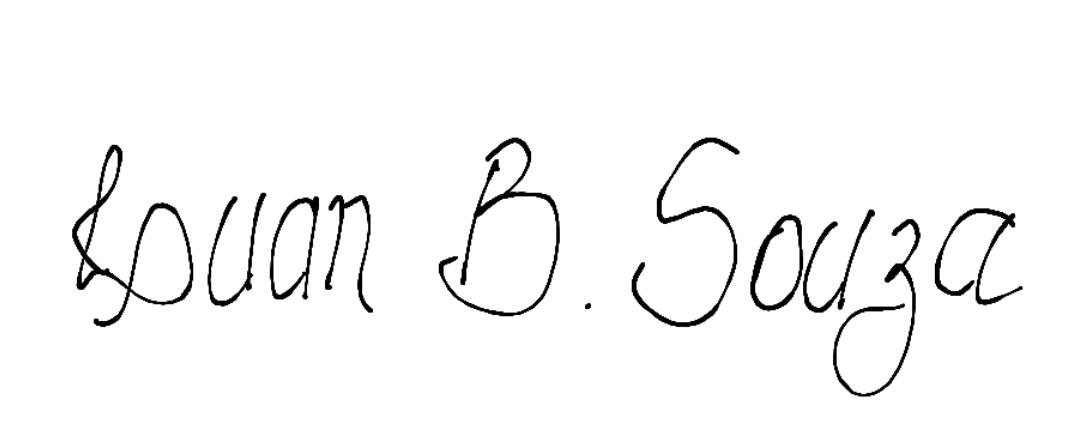 Luan B. Souza